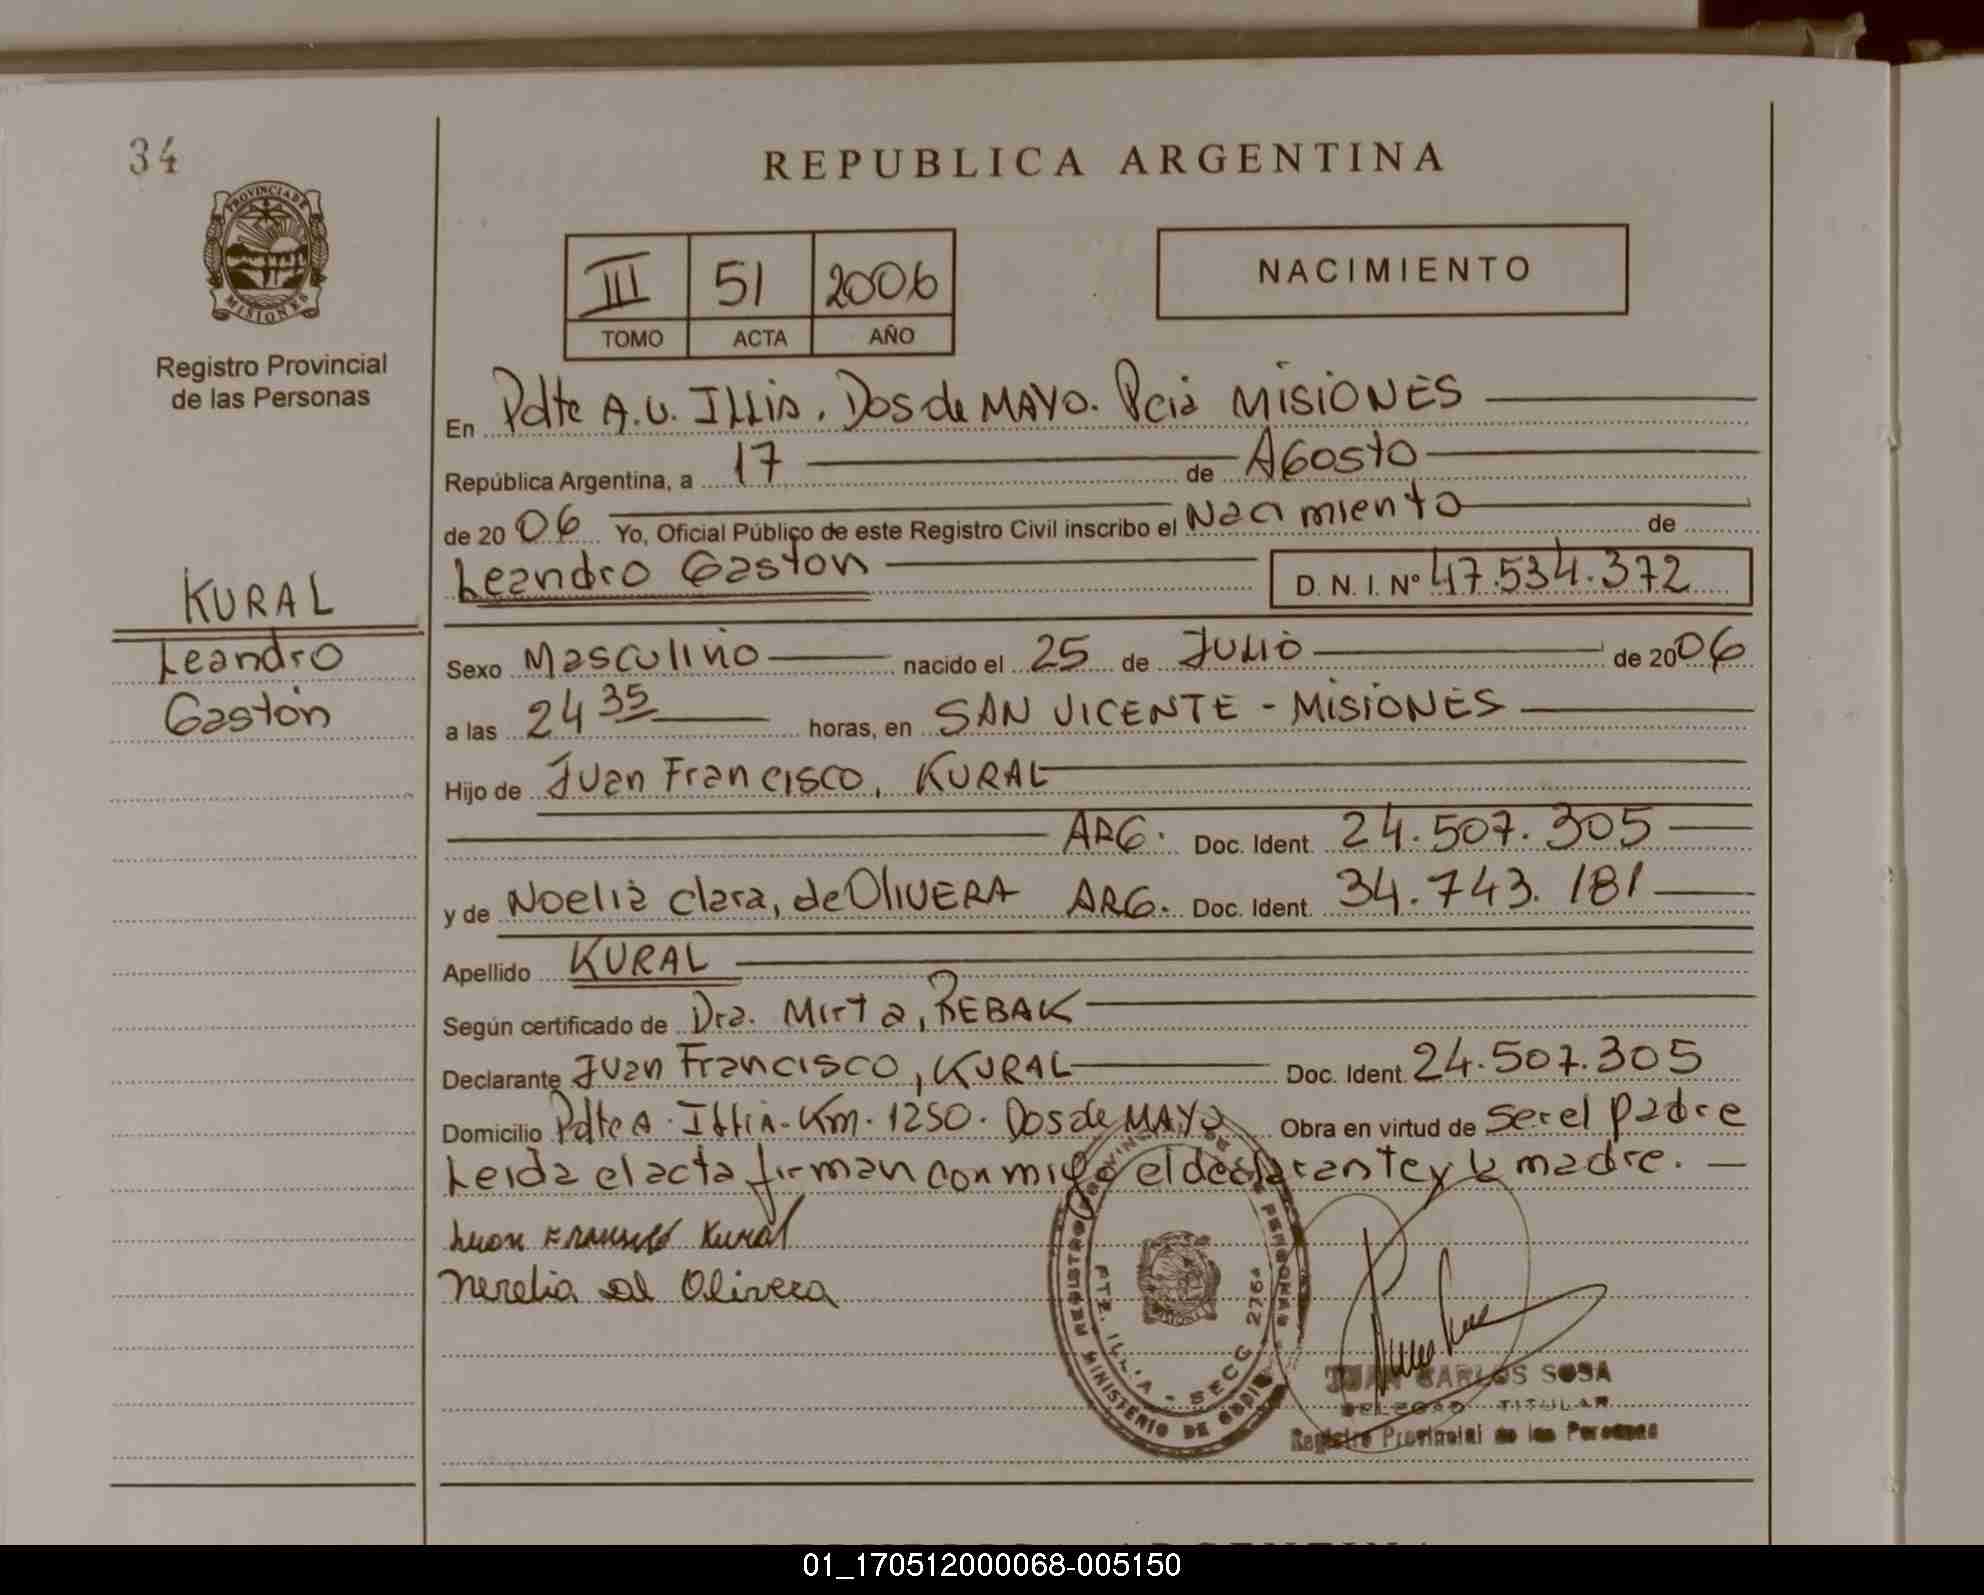 34
PROVINCIA DE
MISIONES
Registro Provincial
de las Personas
REPUBLICA ARGENTINA
III 51 2006
TOMO ACTA AÑO
NACIMIENTO
En Pdte A.U. ILLIA. Dos de MAYO. Pcia MISIONES
República Argentina, a 17 de AGosto
de 20 06 Yo, Oficial Público de este Registro Civil inscribo el Nacimiento de
Leandro Gaston D. N. I. Nº 47.534.372
KURAL
Leandro
Gastón
Sexo Masculino nacido el 25 de JULIO de 2006
a las 24 35 horas, en SAN VICENTE - MISIONES
Hijo de Juan Francisco, KURAL
ARG. Doc. Ident. 24.507.305
y de Noelia clara, de OLIVERA ARG. Doc. Ident. 34.743.181
Apellido KURAL
Según certificado de Dra. Mirta, REBAK
Declarante Juan Francisco, KURAL Doc. Ident. 24.507.305
Domicilio Pdte A. ILLIA - Km. 1250. Dos de MAYO Obra en virtud de ser el padre
Leida el acta firman conmigo el declarante y la madre.
Juan Francisco Kural
de Olivera
REGISTRO PROVINCIAL DE LAS PERSONAS
MINISTERIO DE
PTE. ILLIA - SECC 2764
JUAN CARLOS SOSA
DELEGADO TITULAR
Registro Provincial de las Personas
01_170512000068-005150